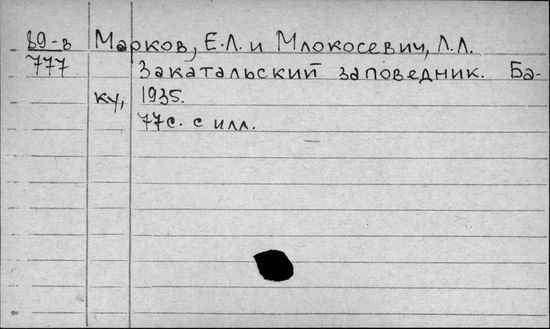 89-в Марков, Е.Л. и Млокосевич, Л.Л.
777 Закатальский заповедник. Ба-
ку, 1935.
77с. с илл.